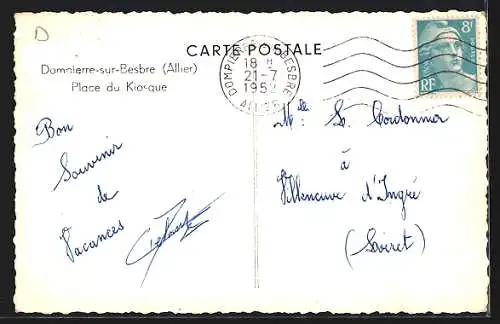 D
CARTE POSTALE
Dompierre-sur-Besbre (Allier)
Place du Kiosque
DOMPIERRE BESBRE
18 H
21-7
1952
ALLIER
8f
RF
Bon
Souvenir
de
Vacances
Mlle: S. Cordonnier
à
Villeneuve d'Ingré
(Loiret)